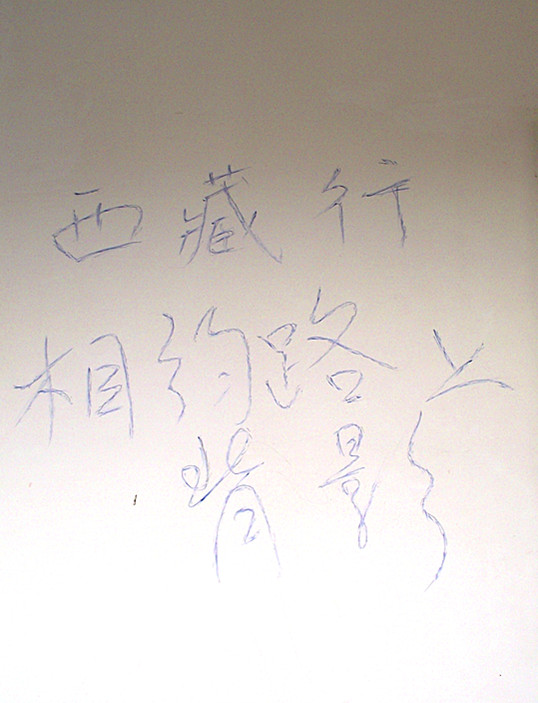 西藏行
相约路上
背影